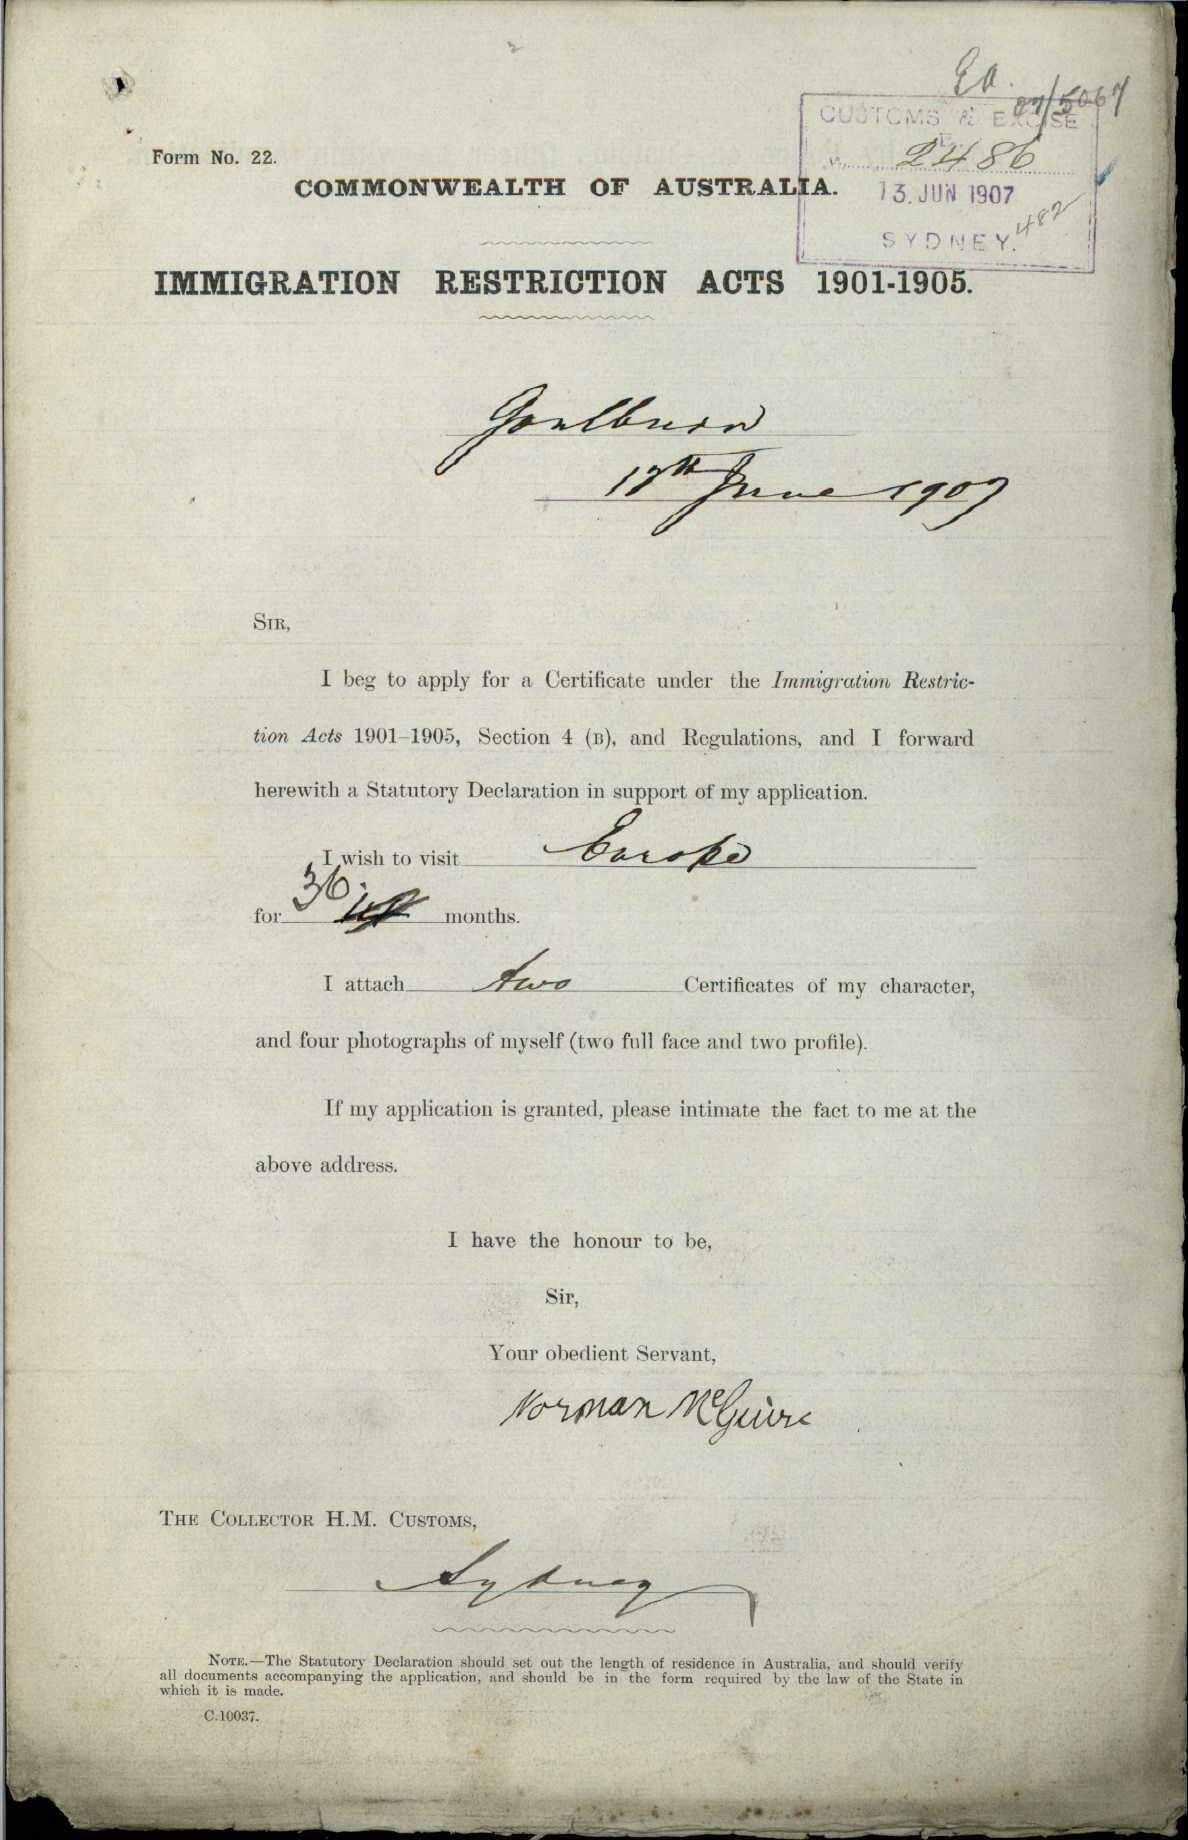 Ea.
07/5067
CUSTOMS & EXCISE
No. 2486
13. JUN 1907
SYDNEY.
482
Form No. 22.
COMMONWEALTH OF AUSTRALIA.
IMMIGRATION RESTRICTION ACTS 1901-1905.
Goulburn
17th June 1907
SIR,
I beg to apply for a Certificate under the Immigration Restric-
tion Acts 1901–1905, Section 4 (B), and Regulations, and I forward
herewith a Statutory Declaration in support of my application.
I wish to visit Europe
for 36 months.
I attach two Certificates of my character,
and four photographs of myself (two full face and two profile).
If my application is granted, please intimate the fact to me at the
above address.
I have the honour to be,
Sir,
Your obedient Servant,
Norman McGuire
THE COLLECTOR H.M. CUSTOMS,
Sydney
NOTE.—The Statutory Declaration should set out the length of residence in Australia, and should verify
all documents accompanying the application, and should be in the form required by the law of the State in
which it is made.
C.10037.